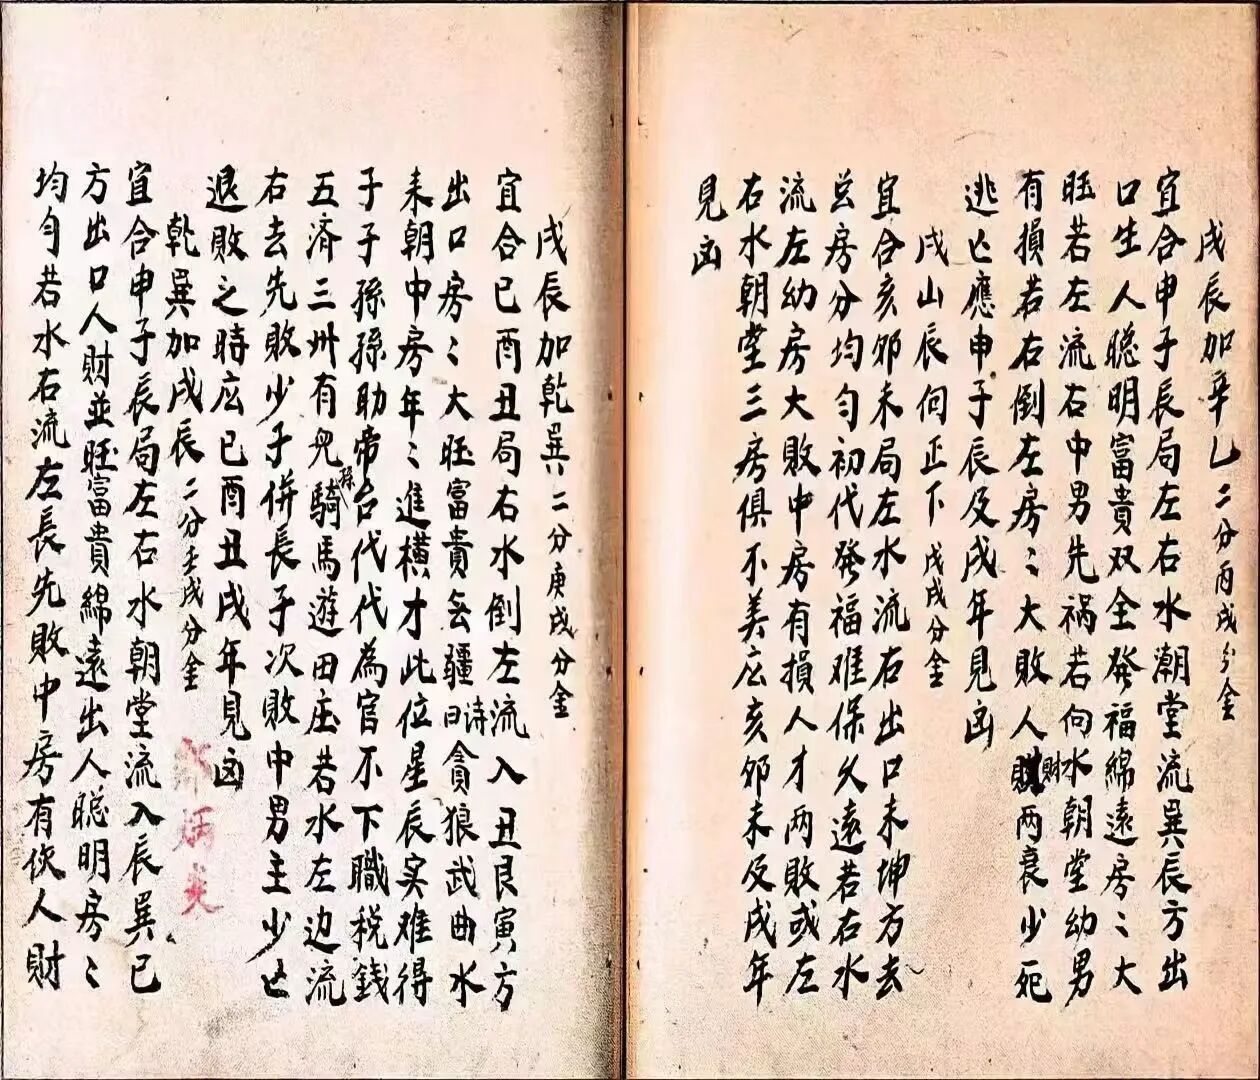 戌辰加辛乙二分丙戌分金
宜合申子辰局左右水潮堂流巽辰方出
口生人聪明富貴双全發福綿遠房〻大
旺若左流右中男先祸若向水朝堂幼男
有損若右倒左房〻大敗人財两衰少死
逃亡應申子辰及戌年見凶
戌山辰向正下戊戌分金
宜合亥卯未局左水流右出口未坤方去
芸房分均匀初代發福难保久遠若右水
流左幼房大敗中房有損人才两敗或左
右水朝堂三房俱不美庅亥卯未及戌年
見凶
戌辰加乾巽二分庚戌分金
宜合巳酉丑局右水倒左流入丑艮寅方
出口房〻大旺富貴無疆詩曰貪狼武曲水
来朝中房年〻進横才此位星辰实难得
子子孫孫助帝台代代為官不下職税錢
五済三州有兒孫騎馬遊田庄若水左边流
右去先敗少子併長子次敗中男主少亡
退敗之時庅巳酉丑戌年見凶
乾巽加戌辰二分壬戌分金
宜合申子辰局左右水朝堂流入辰巽巳
方出口人財並旺富貴綿遠出人聪明房〻
均匀若水右流左長先敗中房有伙人財